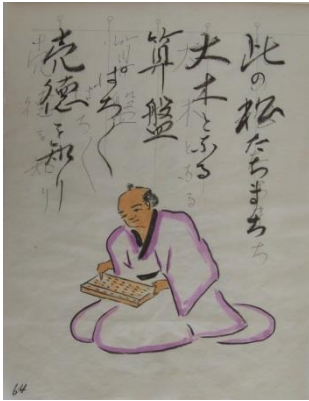 此の松たちまち
大木となる
算盤
ぱち〱
売徳を知り
64